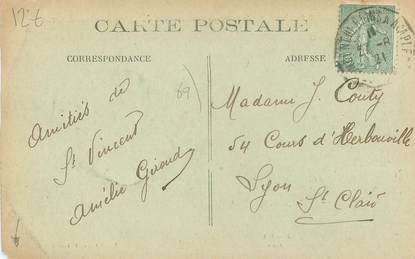 12€
CARTE POSTALE
CORRESPONDANCE
ADRESSE
69
Amitiés de
St Vincent
Amélie Giraud
Madame J. Couty
54 Cours d'Herbouville
Lyon
St Clair